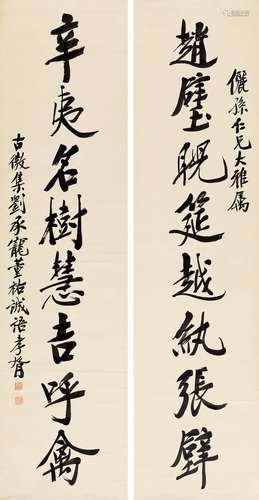 儷孫仁兄大雅属
趙璧睍筵越紈張臂
辛夷名樹慧吉呼禽
古微集劉承寵董祐誠語孝胥